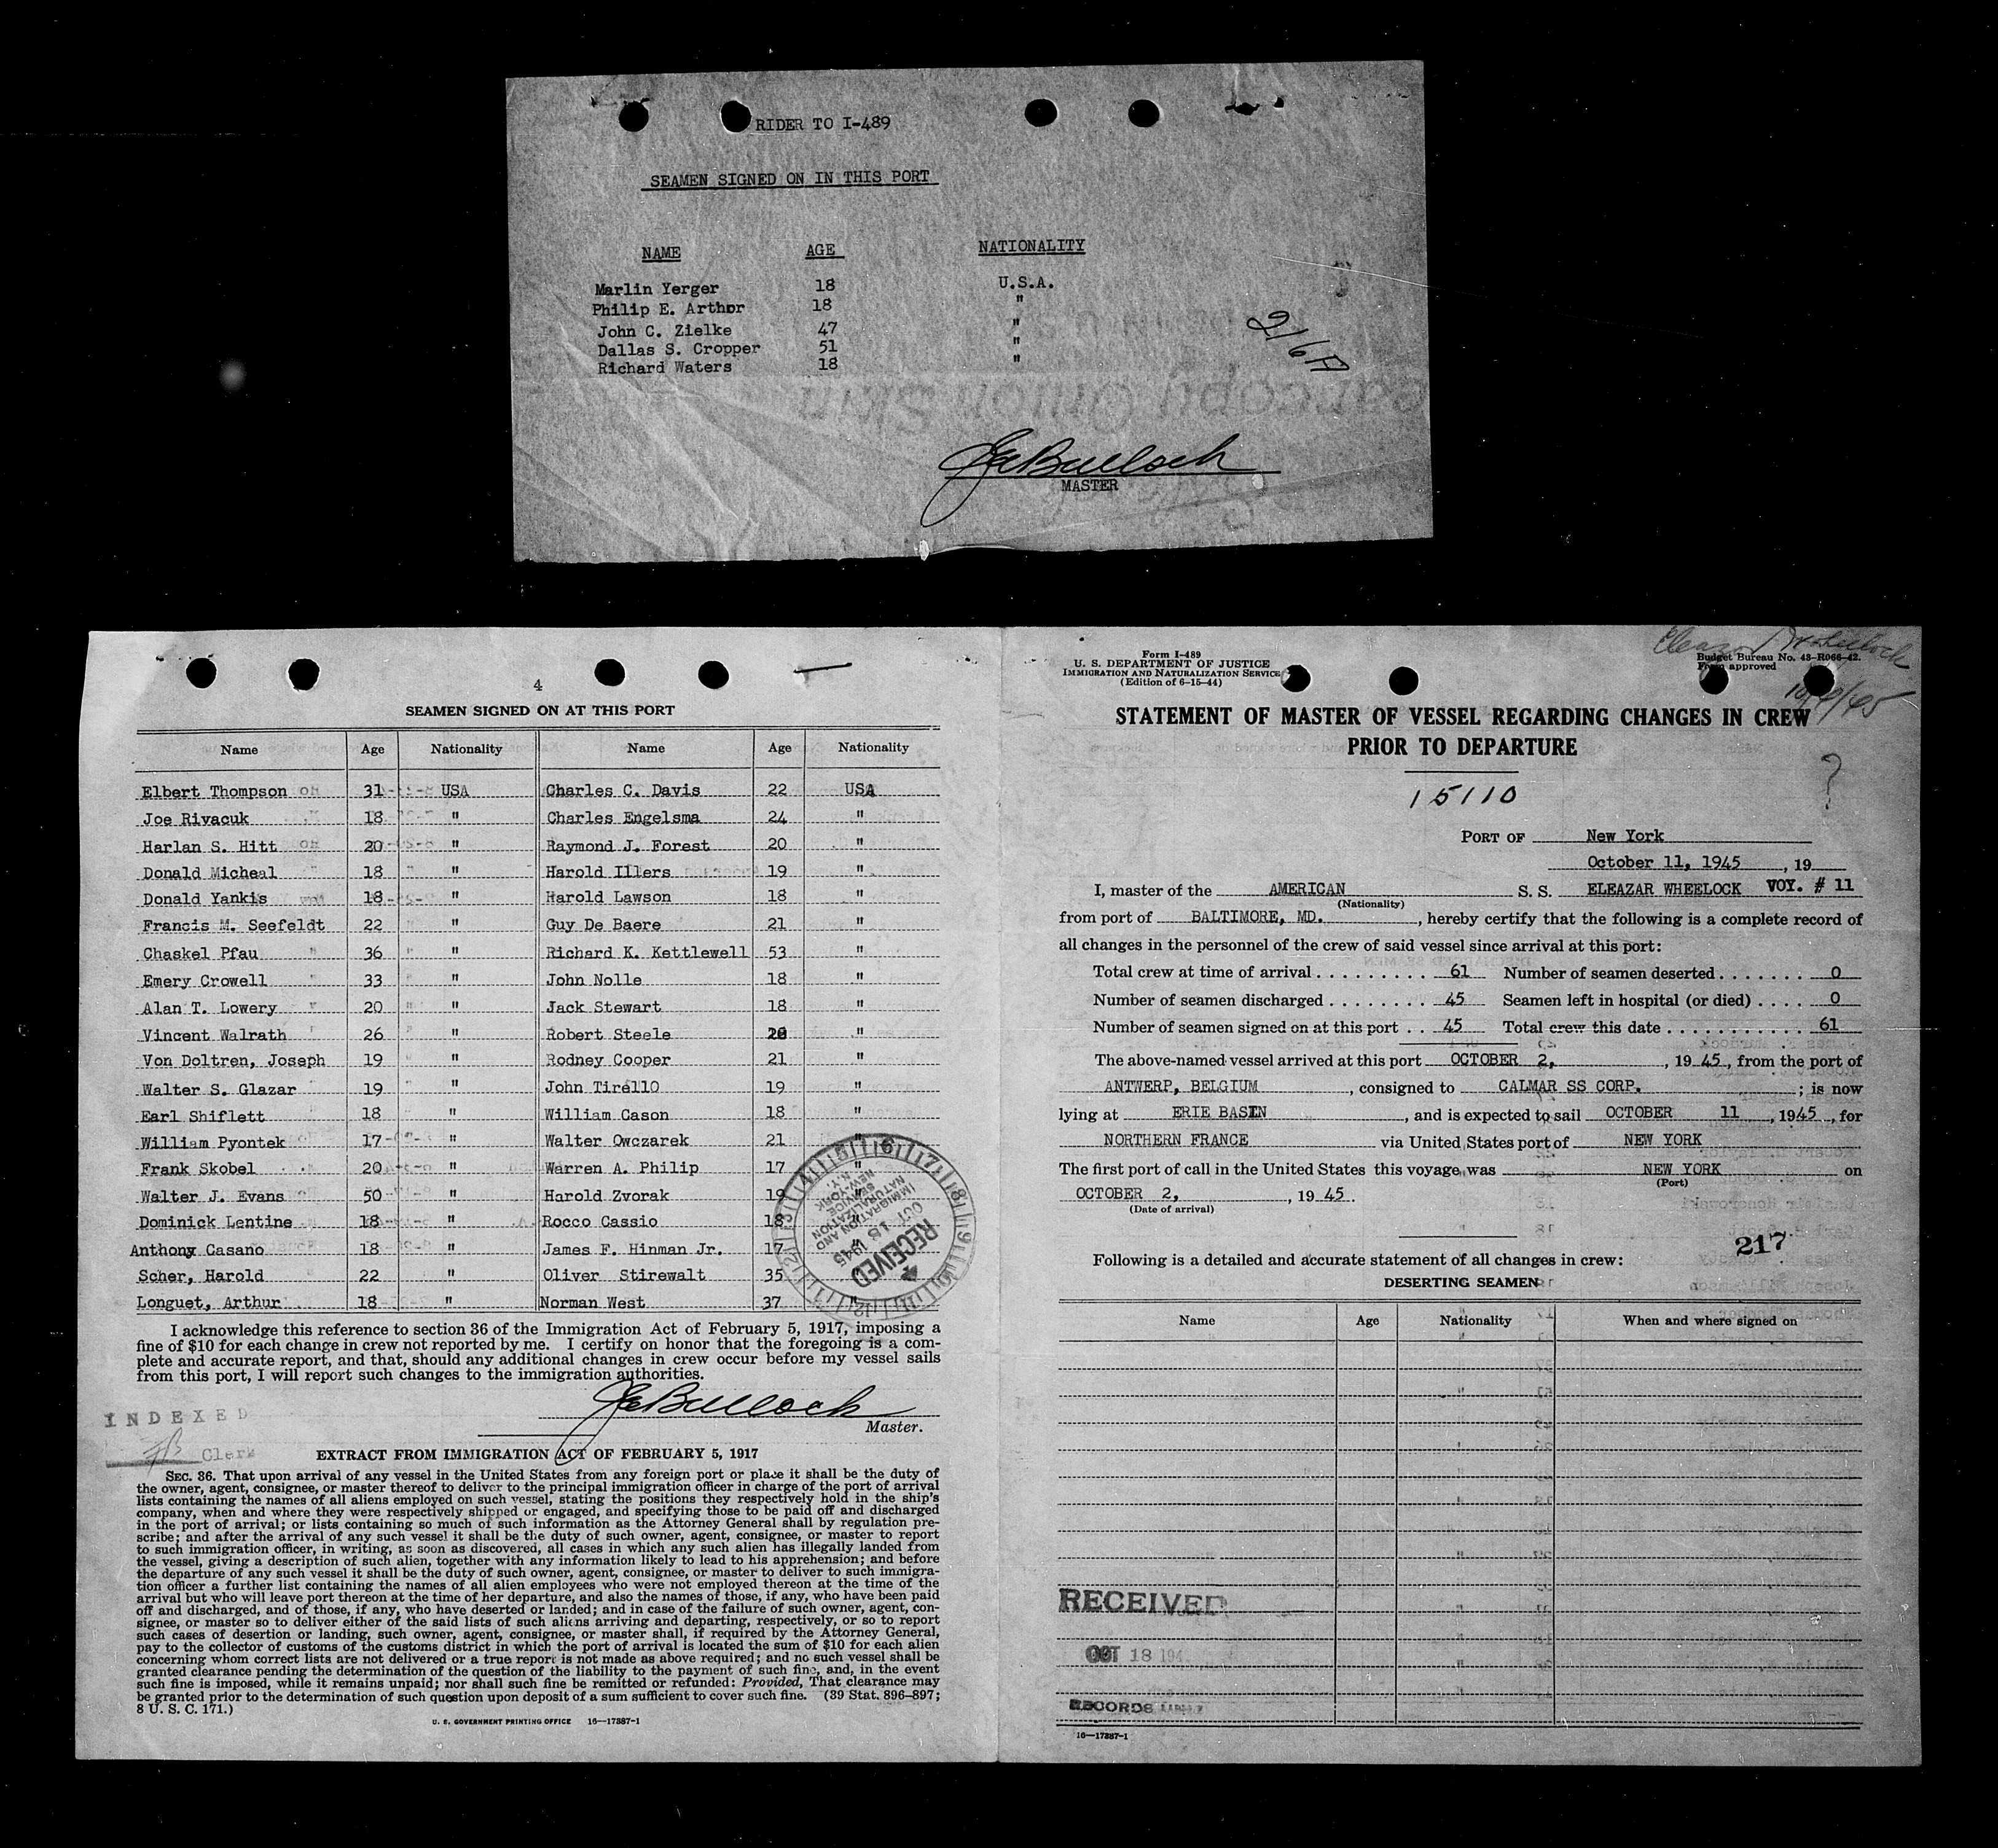 RIDER TO I-489
SEAMEN SIGNED ON IN THIS PORT
NAME AGE NATIONALITY
Marlin Yerger 18 U.S.A.
Philip E. Arthor 18 "
John C. Zielke 47 "
Dallas S. Cropper 51 "
Richard Waters 18 "
216A
JEBullock
MASTER
4
SEAMEN SIGNED ON AT THIS PORT
Name Age Nationality Name Age Nationality
Elbert Thompson 31 USA Charles C. Davis 22 USA
Joe Rivacuk 18 " Charles Engelsma 24 "
Harlan S. Hitt 20 " Raymond J. Forest 20 "
Donald Micheal 18 " Harold Illers 19 "
Donald Yankis 18 " Harold Lawson 18 "
Francis M. Seefeldt 22 " Guy De Baere 21 "
Chaskel Pfau 36 " Richard K. Kettlewell 53 "
Emery Crowell 33 " John Nolle 18 "
Alan T. Lowery 20 " Jack Stewart 18 "
Vincent Walrath 26 " Robert Steele "
Von Doltren, Joseph 19 " Rodney Cooper 21 "
Walter S. Glazar 19 " John Tirello 19 "
Earl Shiflett 18 " William Cason 18 "
William Pyontek 17 " Walter Owczarek 21 "
Frank Skobel 20 " Warren A. Philip 17 "
Walter J. Evans 50 " Harold Zvorak 19 "
Dominick Lentine 18 " Rocco Cassio 18 "
Anthony Casano 18 " James F. Hinman Jr. 17 "
Scher, Harold 22 " Oliver Stirewalt 35 "
Longuet, Arthur 18 " Norman West 37 "
RECEIVED
OCT 18 1945
IMMIGRATION AND
NATURALIZATION
SERVICE
NEW YORK
N.Y.
I acknowledge this reference to section 36 of the Immigration Act of February 5, 1917, imposing a
fine of $10 for each change in crew not reported by me. I certify on honor that the foregoing is a com-
plete and accurate report, and that, should any additional changes in crew occur before my vessel sails
from this port, I will report such changes to the immigration authorities.
JEBullock
Master.
INDEXED
Clerk
EXTRACT FROM IMMIGRATION ACT OF FEBRUARY 5, 1917
SEC. 36. That upon arrival of any vessel in the United States from any foreign port or place it shall be the duty of
the owner, agent, consignee, or master thereof to deliver to the principal immigration officer in charge of the port of arrival
lists containing the names of all aliens employed on such vessel, stating the positions they respectively hold in the ship's
company, when and where they were respectively shipped or engaged, and specifying those to be paid off and discharged
in the port of arrival; or lists containing so much of such information as the Attorney General shall by regulation pre-
scribe; and after the arrival of any such vessel it shall be the duty of such owner, agent, consignee, or master to report
to such immigration officer, in writing, as soon as discovered, all cases in which any such alien has illegally landed from
the vessel, giving a description of such alien, together with any information likely to lead to his apprehension; and before
the departure of any such vessel it shall be the duty of such owner, agent, consignee, or master to deliver to such immigra-
tion officer a further list containing the names of all alien employees who were not employed thereon at the time of the
arrival but who will leave port thereon at the time of her departure, and also the names of those, if any, who have been paid
off and discharged, and of those, if any, who have deserted or landed; and in case of the failure of such owner, agent, con-
signee, or master so to deliver either of the said lists of such aliens arriving and departing, respectively, or so to report
such cases of desertion or landing, such owner, agent, consignee, or master shall, if required by the Attorney General,
pay to the collector of customs of the customs district in which the port of arrival is located the sum of $10 for each alien
concerning whom correct lists are not delivered or a true report is not made as above required; and no such vessel shall be
granted clearance pending the determination of the question of the liability to the payment of such fine, and, in the event
such fine is imposed, while it remains unpaid; nor shall such fine be remitted or refunded: Provided, That clearance may
be granted prior to the determination of such question upon deposit of a sum sufficient to cover such fine. (39 Stat. 896–897;
8 U. S. C. 171.)
U. S. GOVERNMENT PRINTING OFFICE 16—17387-1
Form I-489
U. S. DEPARTMENT OF JUSTICE
IMMIGRATION AND NATURALIZATION SERVICE
(Edition of 6-15-44)
Eleazar Wheelock
Budget Bureau No. 43-R066-42.
Form approved
STATEMENT OF MASTER OF VESSEL REGARDING CHANGES IN CREW
PRIOR TO DEPARTURE
?
15110
PORT OF New York
October 11, 1945, 19
I, master of the AMERICAN S. S. ELEAZAR WHEELOCK VOY. # 11
(Nationality)
from port of BALTIMORE, MD., hereby certify that the following is a complete record of
all changes in the personnel of the crew of said vessel since arrival at this port:
Total crew at time of arrival 61 Number of seamen deserted 0
Number of seamen discharged 45 Seamen left in hospital (or died) 0
Number of seamen signed on at this port 45 Total crew this date 61
The above-named vessel arrived at this port OCTOBER 2, , 1945, from the port of
ANTWERP, BELGIUM, consigned to CALMAR SS CORP. ; is now
lying at ERIE BASIN, and is expected to sail OCTOBER 11, 1945, for
NORTHERN FRANCE via United States port of NEW YORK
The first port of call in the United States this voyage was NEW YORK on
(Port)
OCTOBER 2, , 1945.
(Date of arrival)
217
Following is a detailed and accurate statement of all changes in crew:
DESERTING SEAMEN
Name Age Nationality When and where signed on
RECEIVED
OCT 18 194
RECORDS
16—17387-1